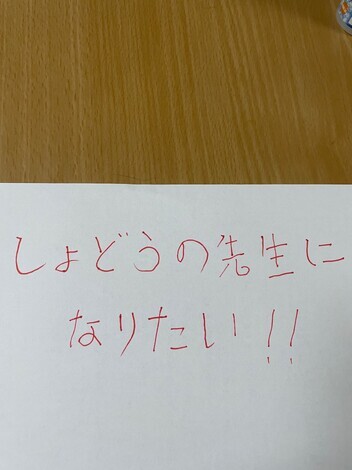 しょどうの先生に
なりたい!!